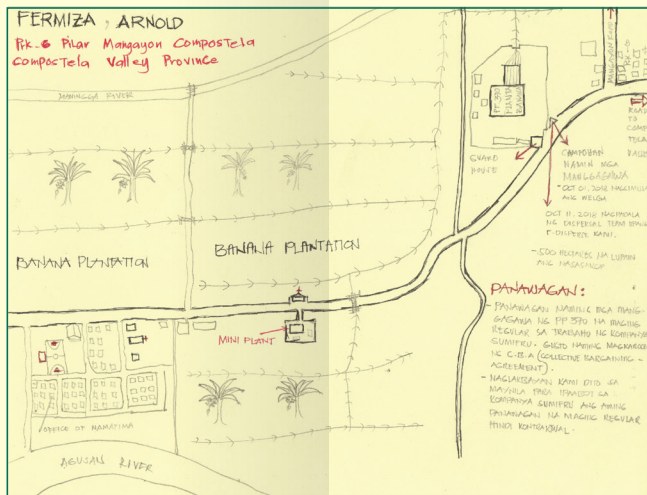 FERMIZA, ARNOLD
Prk-6 Pilar Mangayon Compostela
Compostela Valley Province
RIVER
BANANA PLANTATION
BANANA PLANTATION
MINI PLANT
OFFICE OF NAMASUFA
AGUSAN RIVER
PP 370
PLANTA
GUARD
HOUSE
ROAD
TO
COMPOS
TELA
CAMPUHAN
NAMIN MGA
MANGGAGAWA
- OCT 01, 2018 NAGSIMULA
ANG WELGA
OCT 11, 2018 NAGPADALA
NG DISPERSAL TEAM
I-DISPERSE KAMI.
- 500 HECTARES NA LUPAIN
ANG
PANAWAGAN:
- PANAWAGAN NAMING MGA MANG-
GAGAWA NG PP 370 NA MAGING
REGULAR SA TRABAHO NG KOMPANYA
SUMIFRU. GUSTO NAMING MAGKAROON
NG C.B.A (COLLECTIVE BARGAINING -
AGREEMENT).
- NAGLAKBAYAN KAMI DITO SA
MAYNILA PARA IPAABOT SA
KOMPANYA SUMIFRU ANG AMING
PANAWAGAN NA MAGING REGULAR
HINDI KONTRAKWAL.